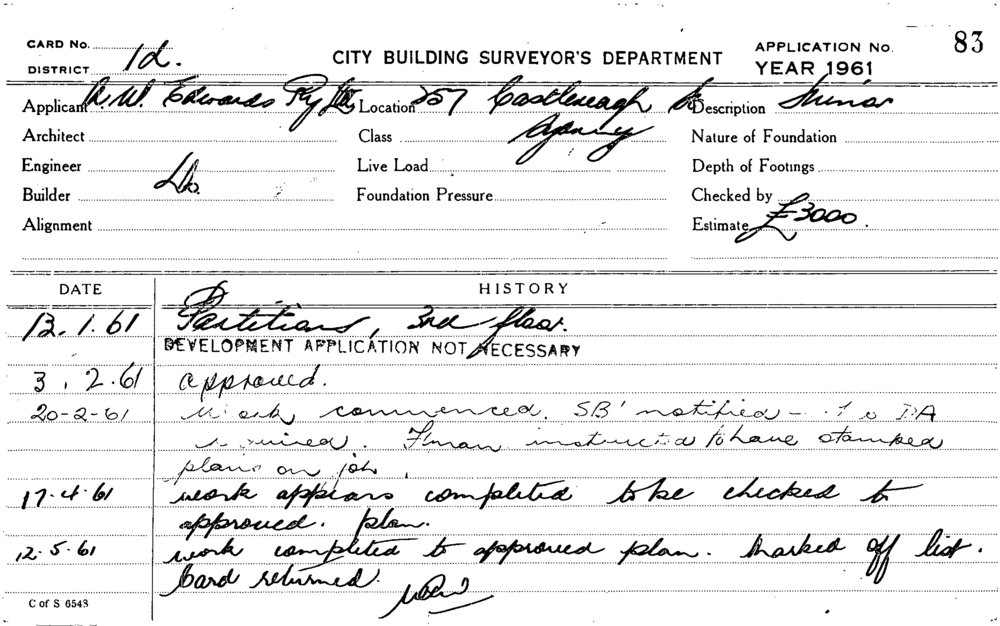 83
CARD No.
CITY BUILDING SURVEYOR'S DEPARTMENT
APPLICATION No.
DISTRICT 1d.
YEAR 1961
Applicant A. W. Edwards Pty Ltd Location 257 Castlereagh St Description Minor
Architect Class Agency Nature of Foundation
Engineer Live Load Depth of Footings
Builder Do. Foundation Pressure Checked by
Alignment Estimate £3000.
DATE HISTORY
13.1.61 Partitions, 3rd floor.
DEVELOPMENT APPLICATION NOT NECESSARY
3.2.61 approved.
20-2-61 Work commenced. SB' notified - DA
required. F'man instructed to have stamped
plans on job.
17.4.61 work appears completed to be checked to
approved. plan.
12.5.61 work completed to approved plan. Marked off list.
Card returned.
C of S 6543